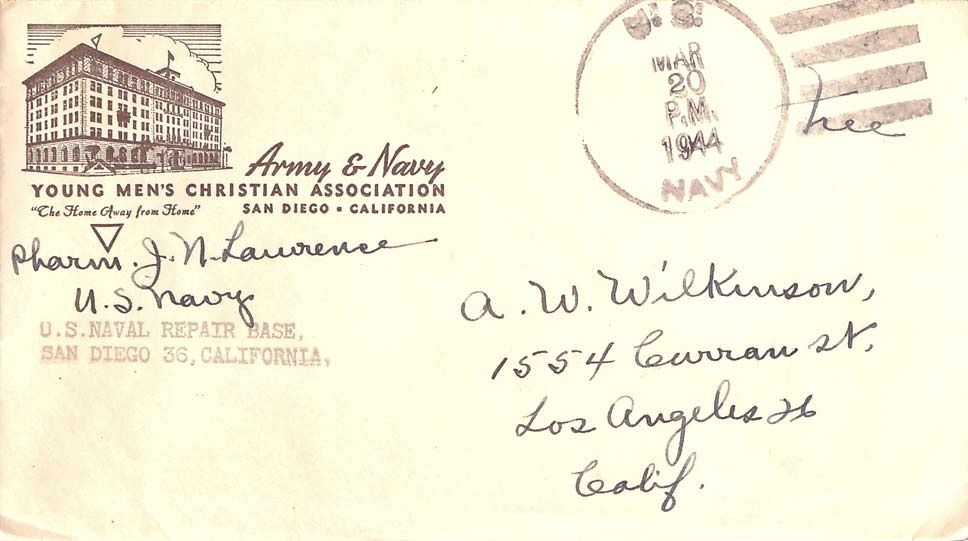 Army & Navy
YOUNG MEN'S CHRISTIAN ASSOCIATION
"The Home Away from Home" SAN DIEGO • CALIFORNIA
Pharm. J. N. Lawrence
U.S. Navy
U.S.NAVAL REPAIR BASE,
SAN DIEGO 36, CALIFORNIA.
U.S.
MAR
20
P.M.
1944
NAVY
Free
A. W. Wilkinson,
1554 Curran St.
Los Angeles 26
Calif.